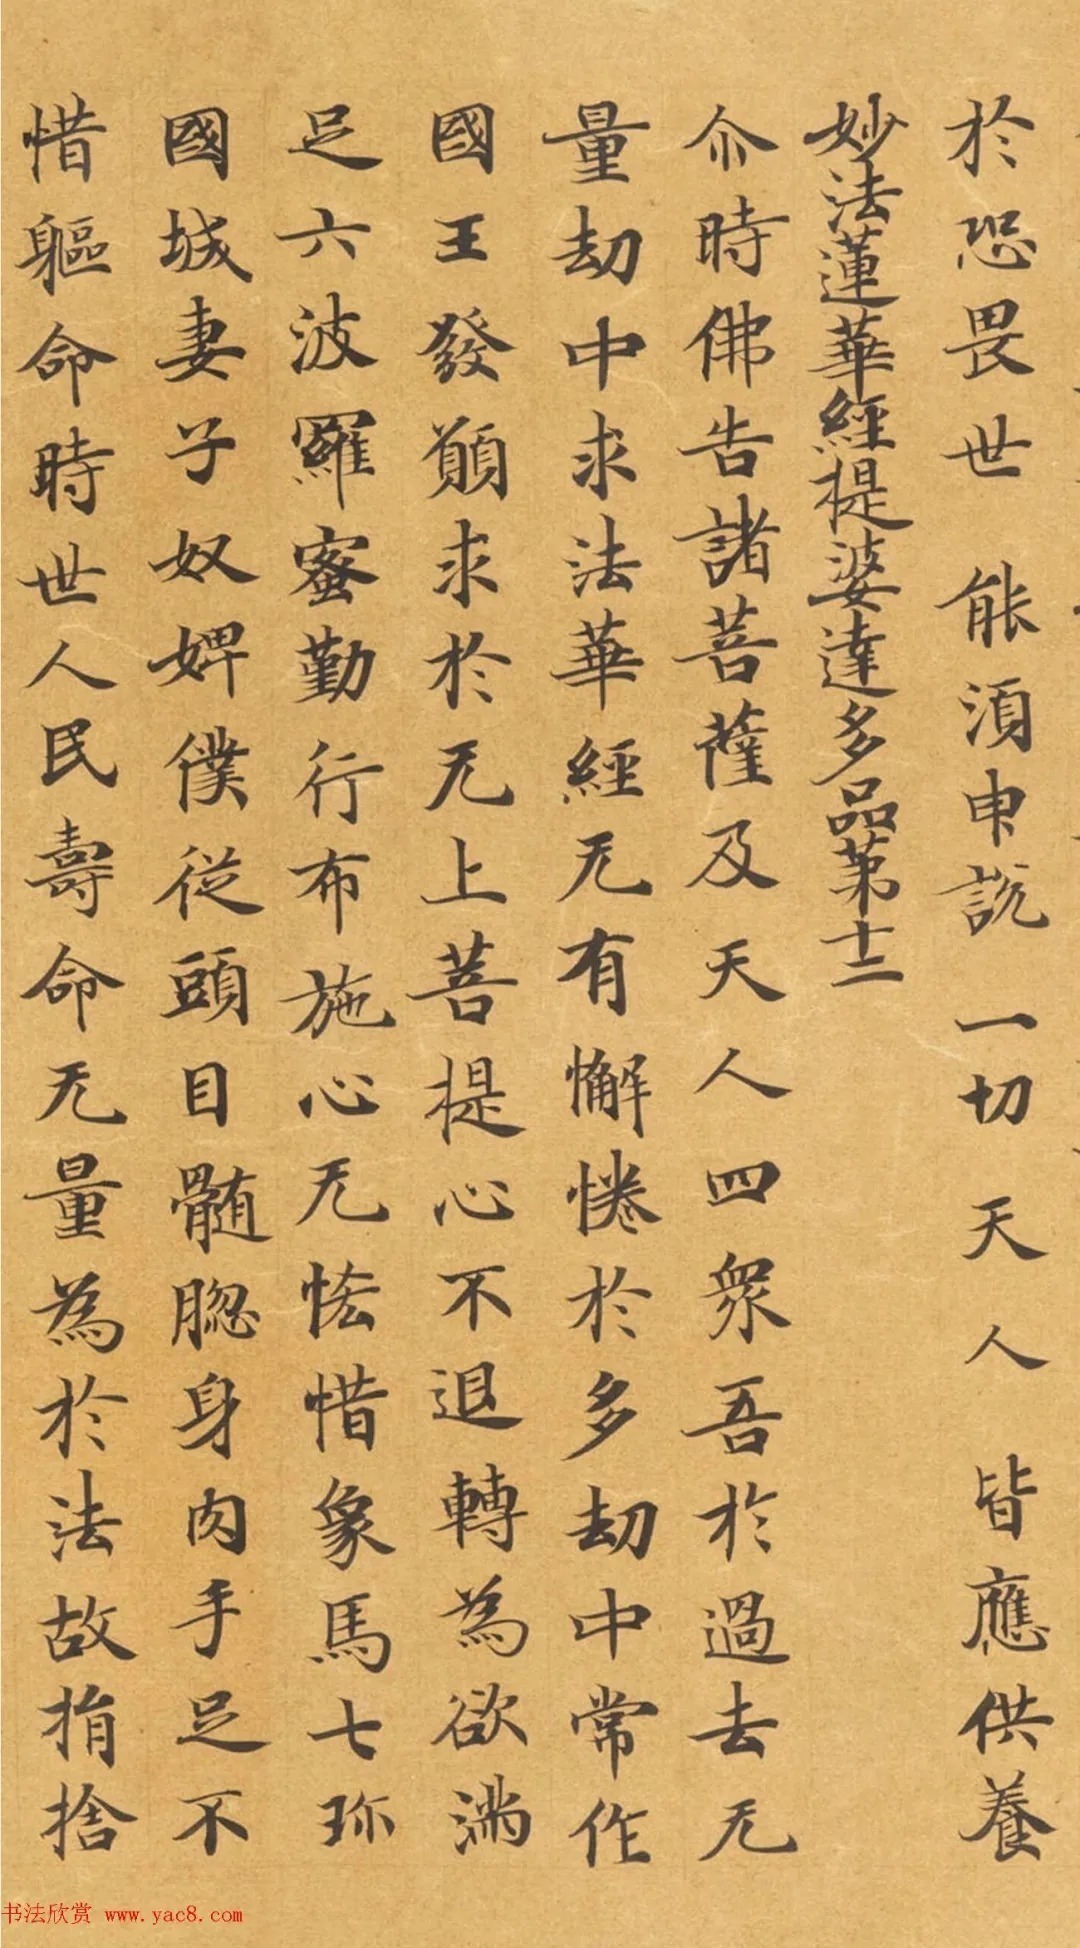 於恐畏世 能湏申說 一切天人 皆應供養
妙法蓮華經提婆達多品第十二
尒時佛告諸菩薩及天人四眾吾於過去无
量劫中求法華經无有懈惓於多劫中常作
國王發願求於无上菩提心不退轉為欲滿
足六波羅蜜勤行布施心无恡惜象馬七珎
國城妻子奴婢僕従頭目髓𦛁身肉手足不
惜軀命時世人民壽命无量為於法故捐捨
书法欣赏 www.yac8.com